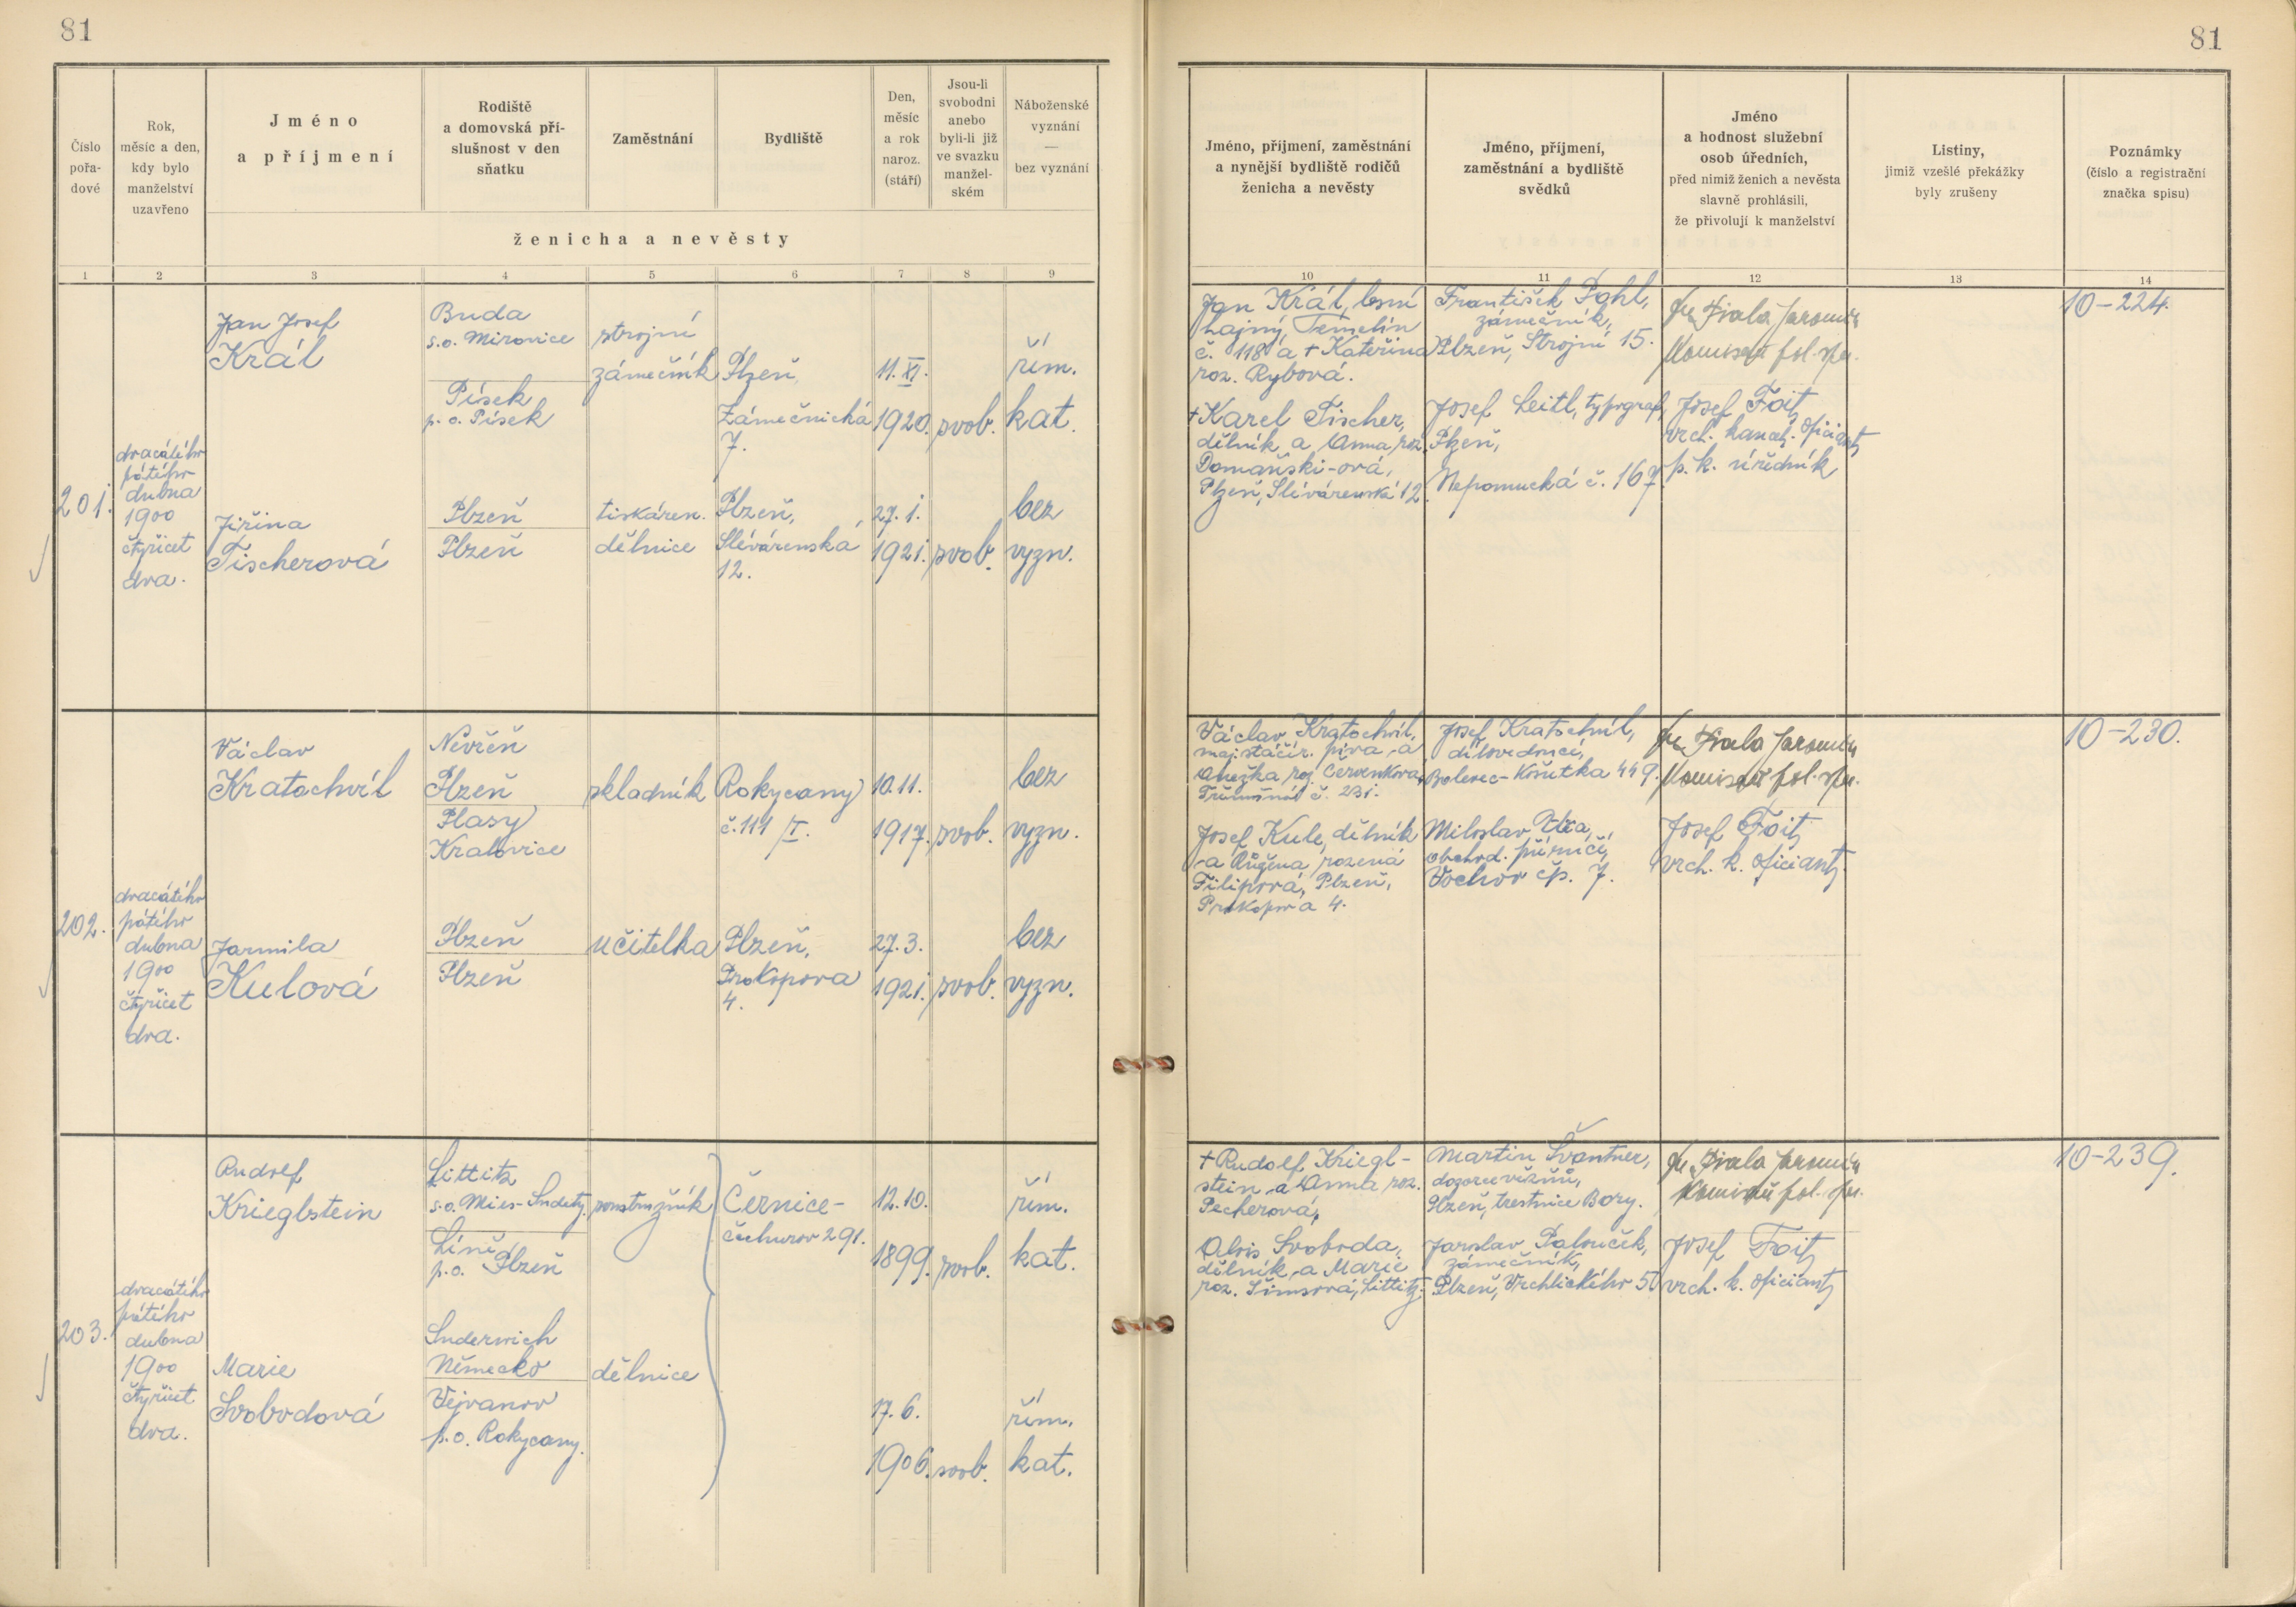 81
81
Číslo
pořa-
dové
Rok,
měsíc a den,
kdy bylo
manželství
uzavřeno
Jméno
a příjmení
Rodiště
a domovská pří-
slušnost v den
sňatku
Zaměstnání
Bydliště
Den,
měsíc
a rok
naroz.
(stáří)
Jsou-li
svobodni
anebo
byli-li již
ve svazku
manžel-
ském
Náboženské
vyznání
—
bez vyznání
ženicha a nevěsty
Jméno, příjmení, zaměstnání
a nynější bydliště rodičů
ženicha a nevěsty
Jméno, příjmení,
zaměstnání a bydliště
svědků
Jméno
a hodnost služební
osob úředních,
před nimiž ženich a nevěsta
slavně prohlásili,
že přivolují k manželství
Listiny,
jimiž vzešlé překážky
byly zrušeny
Poznámky
(číslo a registrační
značka spisu)
1 2 3 4 5 6 7 8 9
10 11 12 13 14
201.
dvacátého
pátého
dubna
1900
čtyřicet
dva.
Jan Josef
Král
Buda
s.o. Mirovice
Písek
p. o. Písek
strojní
zámečník
Plzeň,
Zámečnická
7.
11. XI.
1920.
svob.
řím.
kat.
Jiřina
Tischerová
Plzeň
Plzeň
tiskáren.
dělnice
Plzeň,
Slévárenská
12.
27. 1.
1921.
svob.
bez
vyzn.
Jan Král, lesní
hajný, Temelín
č. 118 a + Kateřina
roz. Rybová.
+ Karel Tischer,
dělník a Anna roz.
Domaňski-ová,
Plzeň, Slévárenská 12.
František Pohl,
zámečník,
Plzeň, Strojní 15.
Josef Leitl, typograf,
Plzeň,
Nepomucká č. 167.
Fiala Jaromír
Komisař pol. spr.
Josef Foit,
vrch. kancel. oficiant,
p. k. úředník
10-224.
202.
dvacátého
pátého
dubna
1900
čtyřicet
dva.
Václav
Kratochvíl
Nevřeň
Plzeň
Plasy
Kralovice
skladník
Rokycany
č. 111/I.
10.11.
1917.
svob.
bez
vyzn.
Jarmila
Kulová
Plzeň
Plzeň
učitelka
Plzeň,
Prokopova
4.
27.3.
1921.
svob.
bez
vyzn.
Václav Kratochvíl,
maj. stáčír. piva a
Anežka roz. Červenková,
Třemošná č. 231.
Josef Kule, dělník
a Růžena rozená
Filipová, Plzeň,
Prokopova 4.
Josef Kratochvíl,
dílovedoucí,
Bolevec-Košutka 449.
Miloslav
obchod. příručí,
Vochov čp. 7.
Fiala Jaromír
Komisař pol. spr.
Josef Foit,
vrch. k. oficiant.
10-230.
203.
dvacátého
pátého
dubna
1900
čtyřicet
dva.
Rudolf
Krieglstein
Littitz
s.o. Mies-Sudety.
Líně
p.o. Plzeň
ponstružník
Černice-
Čechurov 291.
12.10.
1899.
svob.
řím.
kat.
Marie
Svobodová
Suderwich
Německo
Vejvanov
p.o. Rokycany.
dělnice
17.6.
1906.
svob.
řím.
kat.
+ Rudolf Kriegl-
stein a Anna roz.
Pecherová,
Alois Svoboda,
dělník a Marie
roz. Šimsová, Littitz.
Martin Švantner,
dozorce vězňů,
Plzeň, trestnice Bory.
Jaroslav Palouček,
zámečník,
Plzeň, Vrchlického 50
Fiala Jaromír
Komisař pol. spr.
Josef Foit,
vrch. k. oficiant,
10-239.